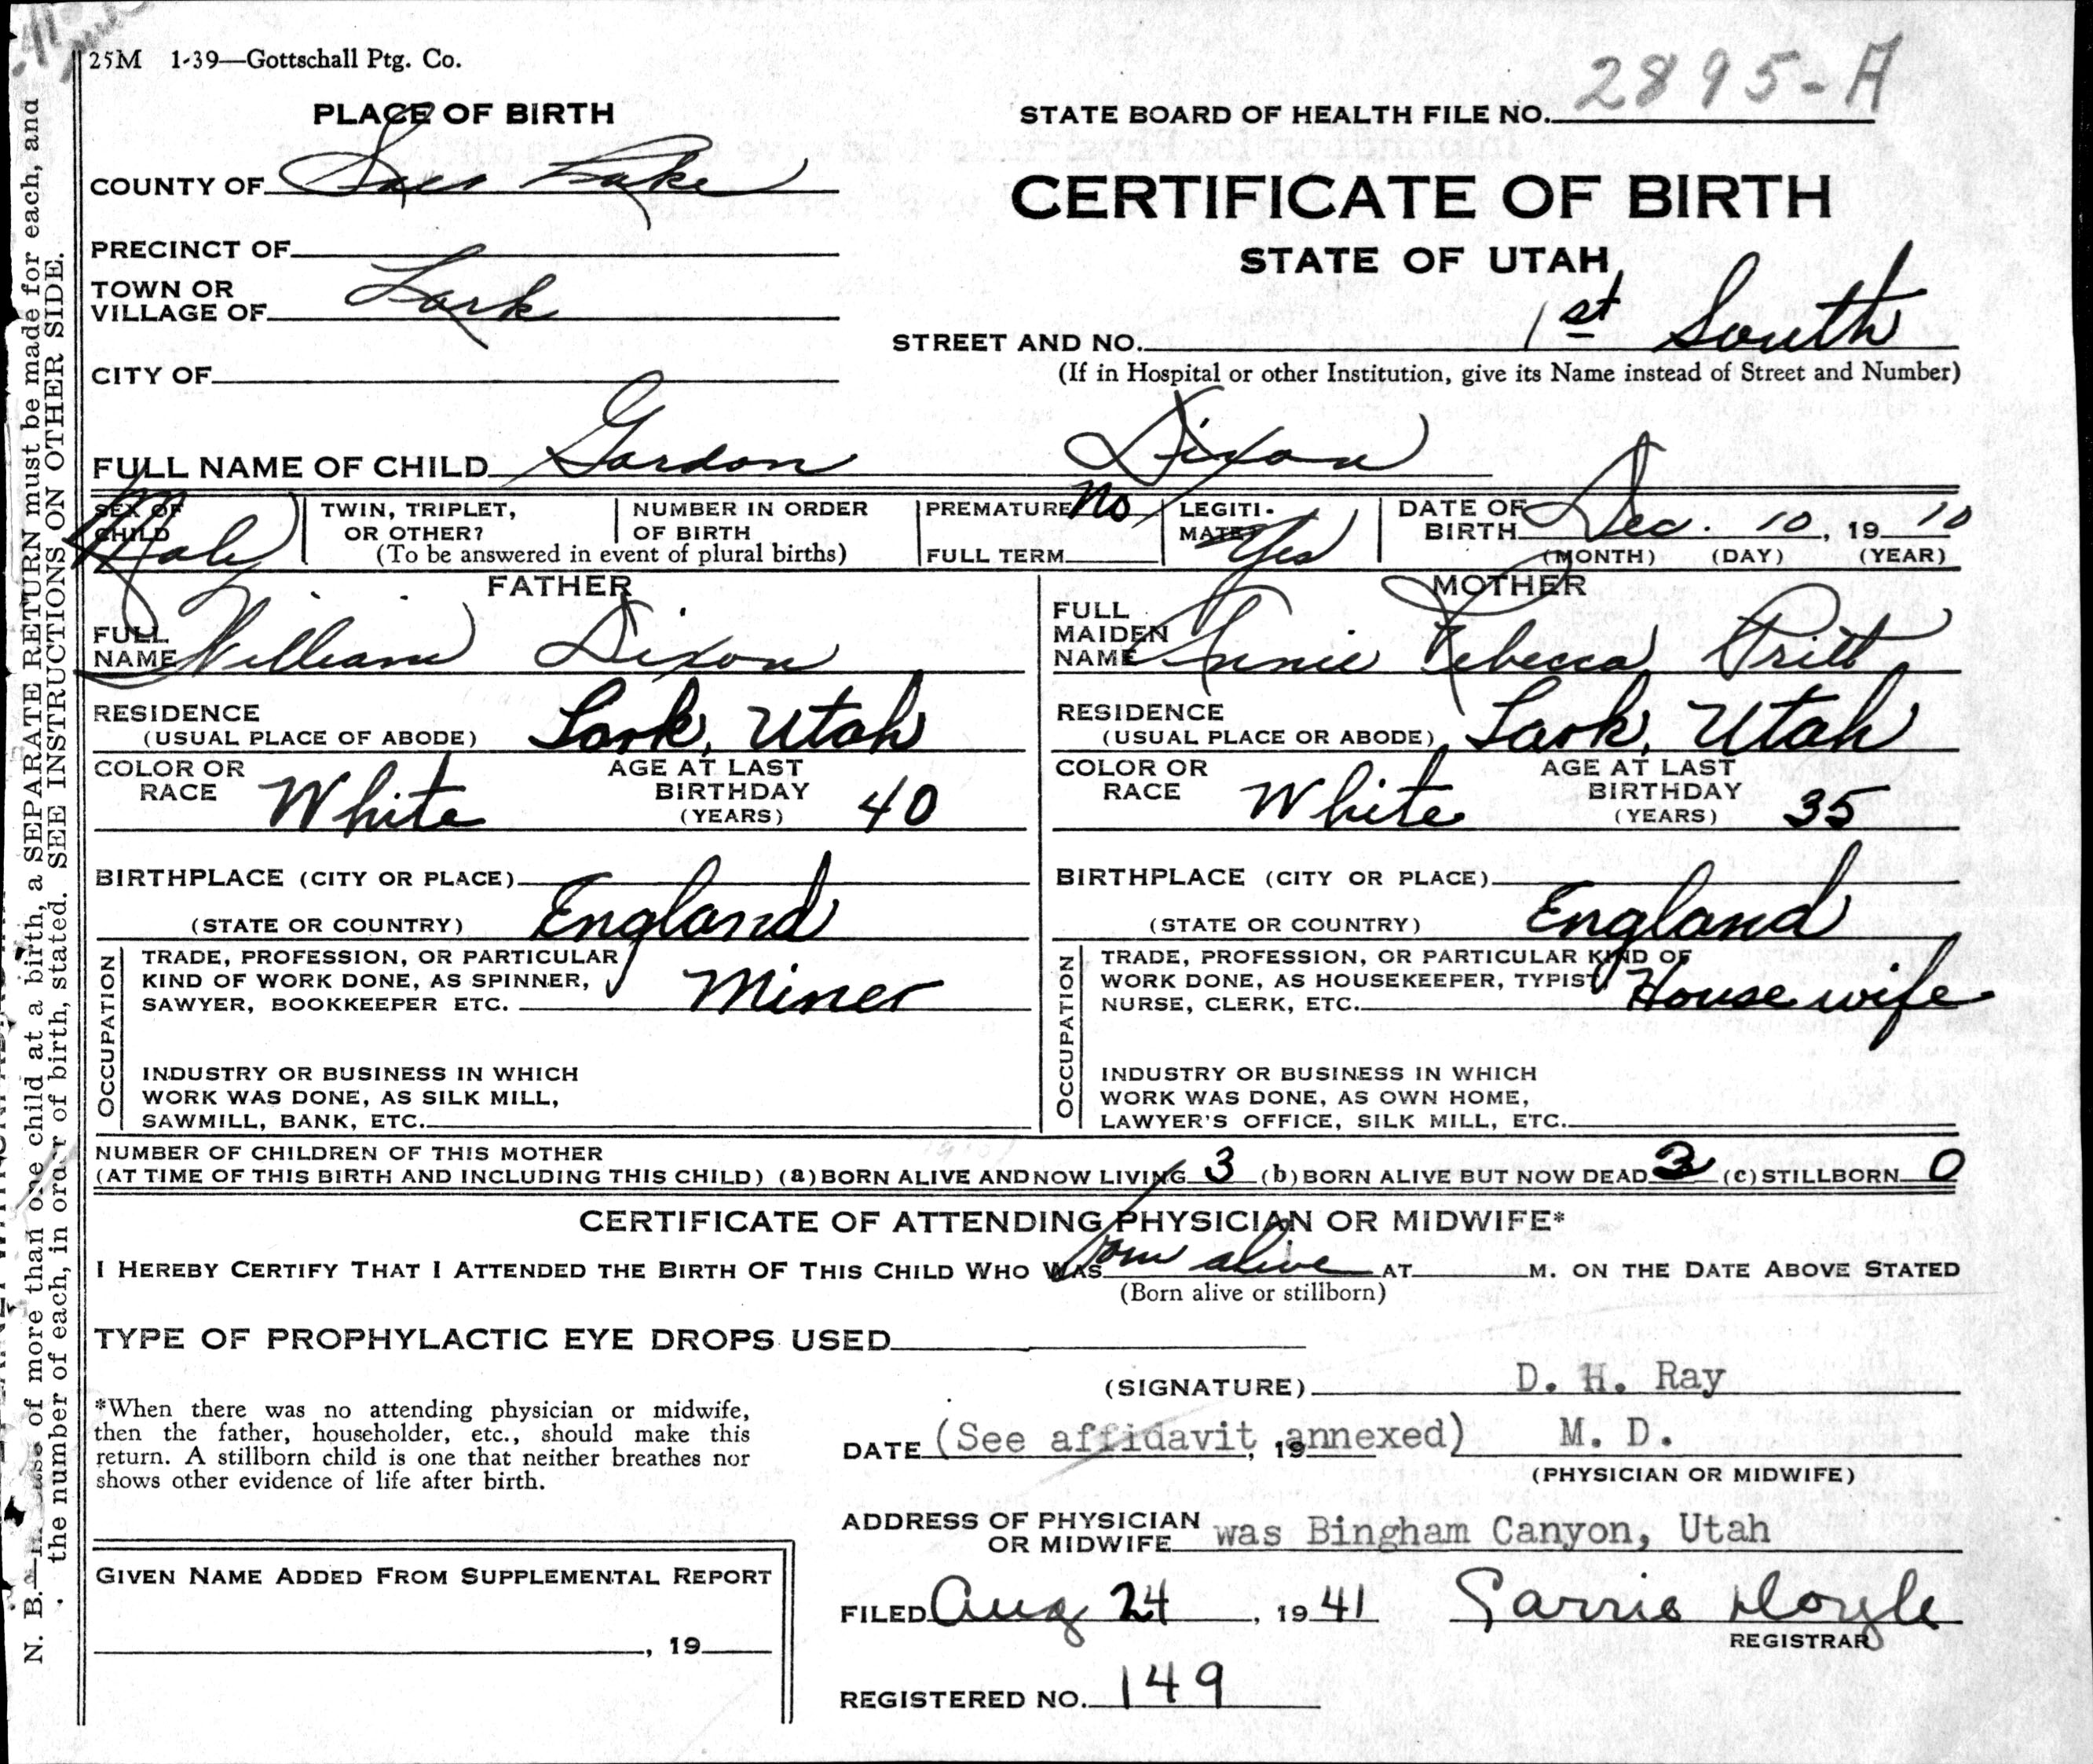 25M 1-39—Gottschall Ptg. Co.
2895-A
PLACE OF BIRTH
STATE BOARD OF HEALTH FILE NO.
COUNTY OF Lake
CERTIFICATE OF BIRTH
PRECINCT OF
STATE OF UTAH
TOWN OR
VILLAGE OF Lark
STREET AND NO. 1st South
(If in Hospital or other Institution, give its Name instead of Street and Number)
CITY OF
FULL NAME OF CHILD Gordon Dixon
SEX OF CHILD Male
TWIN, TRIPLET, OR OTHER?
NUMBER IN ORDER OF BIRTH
(To be answered in event of plural births)
PREMATURE No
FULL TERM
LEGITI-
MATE? Yes
DATE OF BIRTH Dec. 10, 19 10
(MONTH) (DAY) (YEAR)
FATHER
FULL NAME William Dixon
RESIDENCE
(USUAL PLACE OF ABODE) Lark, Utah
COLOR OR RACE White
AGE AT LAST BIRTHDAY (YEARS) 40
BIRTHPLACE (CITY OR PLACE)
(STATE OR COUNTRY) England
OCCUPATION
TRADE, PROFESSION, OR PARTICULAR
KIND OF WORK DONE, AS SPINNER,
SAWYER, BOOKKEEPER ETC. Miner
INDUSTRY OR BUSINESS IN WHICH
WORK WAS DONE, AS SILK MILL,
SAWMILL, BANK, ETC.
MOTHER
FULL MAIDEN NAME Annie Rebecca Pritt
RESIDENCE
(USUAL PLACE OR ABODE) Lark, Utah
COLOR OR RACE White
AGE AT LAST BIRTHDAY (YEARS) 35
BIRTHPLACE (CITY OR PLACE)
(STATE OR COUNTRY) England
OCCUPATION
TRADE, PROFESSION, OR PARTICULAR KIND OF
WORK DONE, AS HOUSEKEEPER, TYPIST
NURSE, CLERK, ETC. House wife
INDUSTRY OR BUSINESS IN WHICH
WORK WAS DONE, AS OWN HOME,
LAWYER'S OFFICE, SILK MILL, ETC.
NUMBER OF CHILDREN OF THIS MOTHER
(AT TIME OF THIS BIRTH AND INCLUDING THIS CHILD) (a) BORN ALIVE AND NOW LIVING 3 (b) BORN ALIVE BUT NOW DEAD (c) STILLBORN 0
CERTIFICATE OF ATTENDING PHYSICIAN OR MIDWIFE*
I HEREBY CERTIFY THAT I ATTENDED THE BIRTH OF THIS CHILD WHO WAS born alive AT M. ON THE DATE ABOVE STATED
(Born alive or stillborn)
TYPE OF PROPHYLACTIC EYE DROPS USED
(SIGNATURE) D. H. Ray
*When there was no attending physician or midwife,
then the father, householder, etc., should make this
return. A stillborn child is one that neither breathes nor
shows other evidence of life after birth.
DATE (See affidavit, 19 annexed) M. D.
(PHYSICIAN OR MIDWIFE)
ADDRESS OF PHYSICIAN
OR MIDWIFE was Bingham Canyon, Utah
GIVEN NAME ADDED FROM SUPPLEMENTAL REPORT
, 19
FILED Aug 24, 19 41 Doyle
REGISTRAR
REGISTERED NO. 149
N. B. of more than one child at a birth, a SEPARATE RETURN must be made for each, and
the number of each, in order of birth, stated. SEE INSTRUCTIONS ON OTHER SIDE.